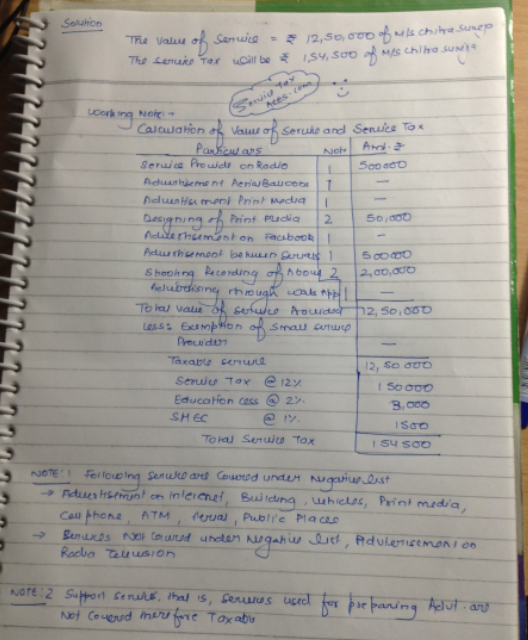 Solution
The value of Service = ₹ 12,50,000 of M/s chitra suneja
The service Tax will be ₹ 1,54,500 of M/s chitra suneja
Service Tax
Aces.com
Working Note:-
Calculation of value of Service and Service Tax
Particulars Note Amt. ₹
Service Provide on Radio 1 500000
Advertisement Aerial 1 —
Advertisement Print Media 1 —
Designing of Print Media 2 50,000
Advertisement on Facebook 1 —
Advertisement between 1 500000
Shooting Recording of Above 2 2,00,000
through App 1 —
Total value of service Provided 12,50,000
Less: Exemption of small service
Provider —
Taxable service 12,50,000
Service Tax @ 12% 150000
Education cess @ 2% 3,000
SHEC @ 1% 1500
Total Service Tax 154500
NOTE: 1 Following service are covered under Negative list
→ Advertisement on internet, Building, vehicles, Print media,
Cell phone, ATM, Aerial, Public Places
→ Services Not covered under Negative list, Advertisement on
Radio Television
NOTE: 2 Support service, that is, services used for preparing Advt. are
Not covered therefore Taxable